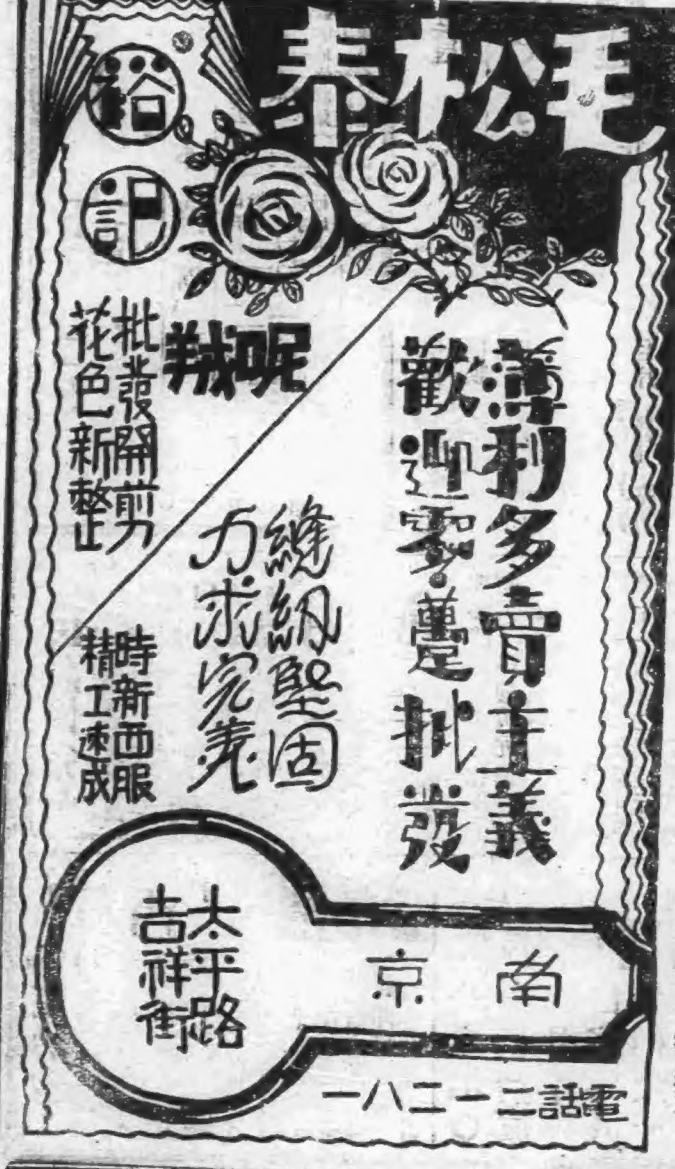 毛松泰
裕記
薄利多賣主義
歡迎零躉批發
呢羢
批發開剪
花色新整
縫紉堅固
力求完美
時新西服
精工速成
南京
太平路
吉祥街
電話二一二八一